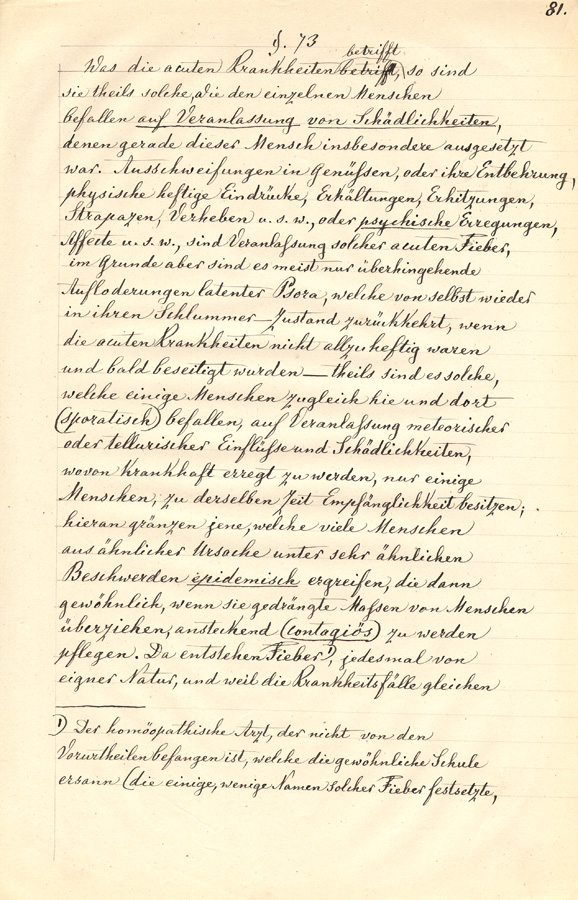 81.
§. 73
betrifft
Was die acuten Krankheiten betrift, so sind
sie theils solche, die den einzelnen Menschen
befallen auf Veranlassung von Schädlichkeiten,
denen gerade dieser Mensch insbesondere ausgesetzt
war. Ausschweifungen in Genüssen, oder ihre Entbehrung,
physische heftige Eindrücke, Erkältungen, Erhitzungen,
Strapazen, Verheben u. s. w., oder psychische Erregungen,
Affecte u. s. w., sind Veranlassung solcher acuten Fieber,
im Grunde aber sind es meist nur überhingehende
Aufloderungen latenter Psora, welche von selbst wieder
in ihren Schlummer-Zustand zurückkehrt, wenn
die acuten Krankheiten nicht allzuheftig waren
und bald beseitigt wurden — theils sind es solche,
welche einige Menschen zugleich hie und dort
(sporatisch) befallen, auf Veranlassung meteorischer
oder tellurischer Einflüsse und Schädlichkeiten,
wovon krankhaft erregt zu werden, nur einige
Menschen, zu derselben Zeit Empfänglichkeit besitzen;
hieran gränzen jene, welche viele Menschen
aus ähnlicher Ursache unter sehr ähnlichen
Beschwerden epidemisch ergreifen, die dann
gewöhnlich, wenn sie gedrängte Massen von Menschen
überziehen, ansteckend (contagiös) zu werden
pflegen. Da entstehen Fieber¹), jedesmal von
eigner Natur, und weil die Krankheitsfälle gleichen
¹) Der homöopathische Arzt, der nicht von den
Vorurtheilen befangen ist, welche die gewöhnliche Schule
ersann (die einige, wenige Namen solcher Fieber festsetzte,